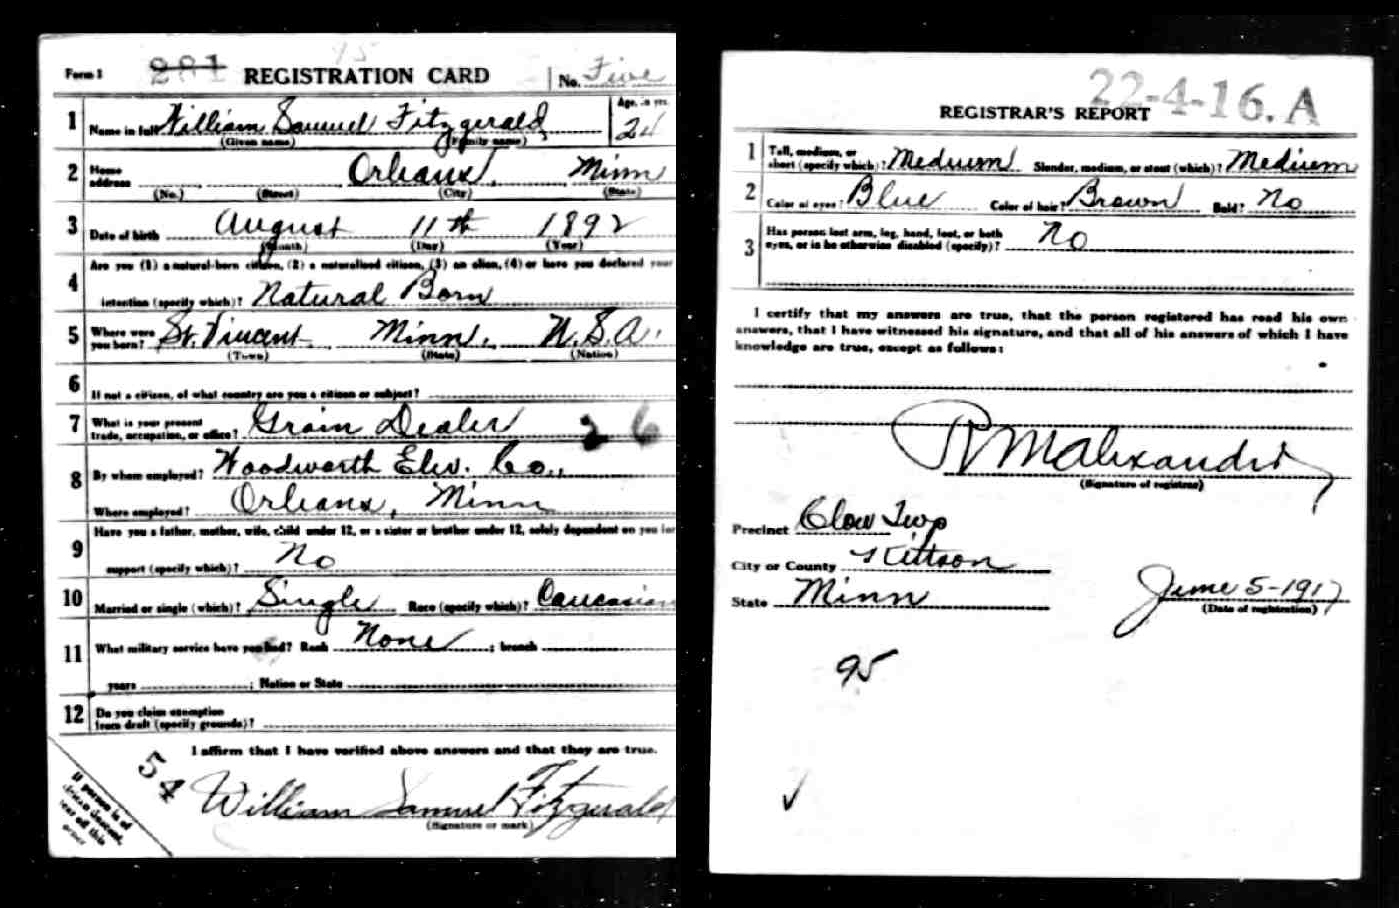 95
Form 1 281 REGISTRATION CARD No. Five
1 Name in full William Samuel Fitzgerald Age, in yrs. 24
(Given name) (Family name)
2 Home address Orleans, Minn
(No.) (Street) (City) (State)
3 Date of birth August 11th 1892
(Month) (Day) (Year)
4 Are you (1) a natural-born citizen, (2) a naturalized citizen, (3) an alien, (4) or have you declared your
intention (specify which)? Natural Born
5 Where were you born? St. Vincent Minn. U.S.A.
(Town) (State) (Nation)
6 If not a citizen, of what country are you a citizen or subject?
7 What is your present trade, occupation, or office? Grain Dealer 26
8 By whom employed? Woodworth Elev. Co.,
Where employed? Orleans, Minn
9 Have you a father, mother, wife, child under 12, or a sister or brother under 12, solely dependent on you for
support (specify which)? No
10 Married or single (which)? Single Race (specify which)? Caucasian
11 What military service have you had? Rank None ; branch
years ; Nation or State
12 Do you claim exemption
from draft (specify grounds)?
I affirm that I have verified above answers and that they are true.
54
William Samuel Fitzgerald
(Signature or mark)
If person is of
descent,
off this
corner
22-4-16. A
REGISTRAR'S REPORT
1 Tall, medium, or short (specify which)? Medium Slender, medium, or stout (which)? Medium
2 Color of eyes? Blue Color of hair? Brown Bald? No
3 Has person lost arm, leg, hand, foot, or both
eyes, or is he otherwise disabled (specify)? No
I certify that my answers are true, that the person registered has read his own
answers, that I have witnessed his signature, and that all of his answers of which I have
knowledge are true, except as follows:
R M Alexander
(Signature of registrar)
Precinct Clow Twp
City or County Kittson
State Minn June 5-1917
(Date of registration)
95